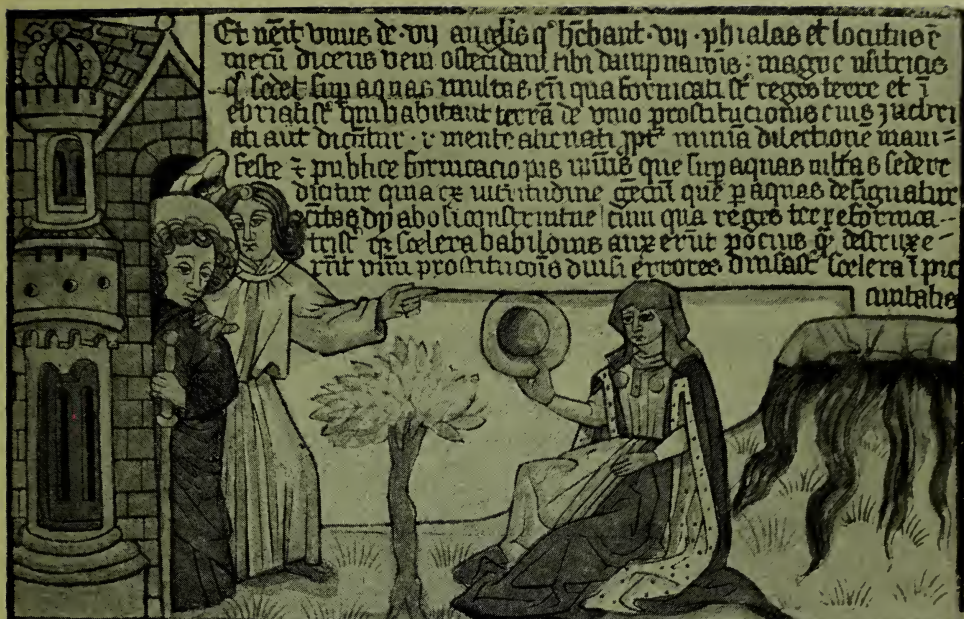 Et uēit unus de · vij angelis q° hēbant · vij · phialas et locutus ē
mecū dicens veni ostendam tibi dampnacōis : magne meretricis
q̄ sedet sup aquas multas cū qua fornicati st̄ reges terre et ī
ebriati st̄ qui habitant terrā de vino prostitucionis eius
ati aut dicūtur · i · mente alienati ꝓpt̄ nimiā dilectionē mani=
feste ⁊ publice fornicacionis que sup aquas multas sedere
dicitur quia ex multitudine gēciū que p aquas designatur
ciuitas dyaboli construitur cum qua reges terre fornica=
ti st̄ qz scelera babilonis auxerūt pocius q̄ destruxe=
rūt vinū prostitucōis errores scelera